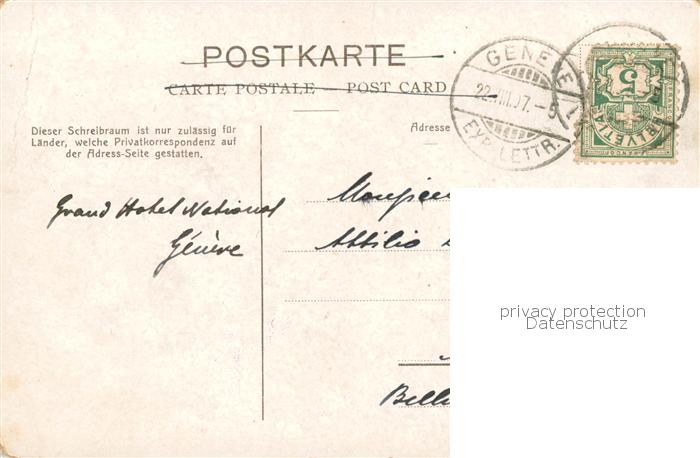 POSTKARTE
CARTE POSTALE – POST CARD
GENEVE
22.III.07.–5
EXP. LETTR.
5
HELVETIA
Dieser Schreibraum ist nur zulässig für
Länder, welche Privatkorrespondenz auf
der Adress-Seite gestatten.
Adresse
Grand Hotel National
Génève
Monsieu
Attilio
Bell
privacy protection
Datenschutz